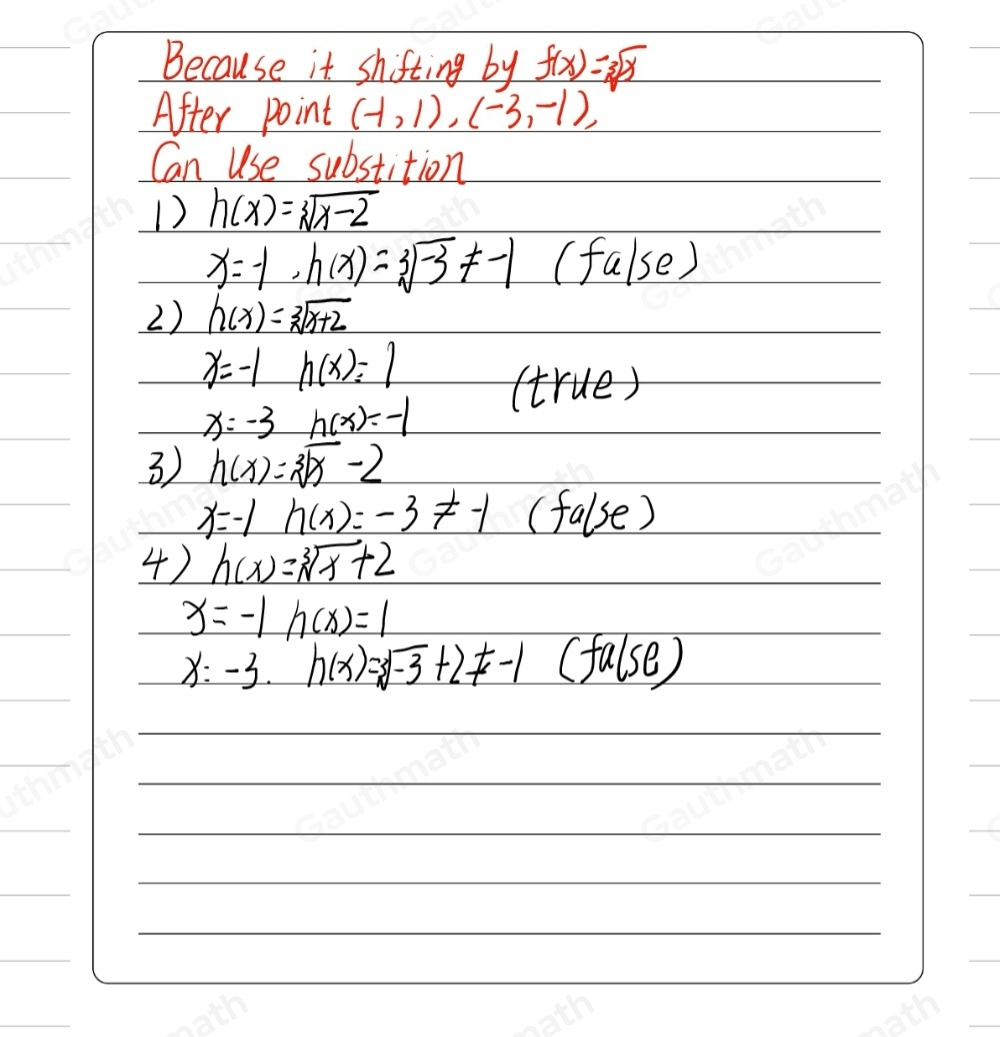 Because it shifting by f(x)=∛x
After point (-1,1),(-3,-1),
Can Use substition
1) h(x)=∛x-2
x=-1, h(x)=∛-3≠-1 (false)
2) h(x)=∛x+2
x=-1 h(x)=1
(true)
x=-3 h(x)=-1
3) h(x)=∛x -2
x=-1 h(x)=-3≠-1 (false)
4) h(x)=∛x+2
x=-1 h(x)=1
x=-3. h(x)=∛-3+2≠-1 (false)
Gauthmath